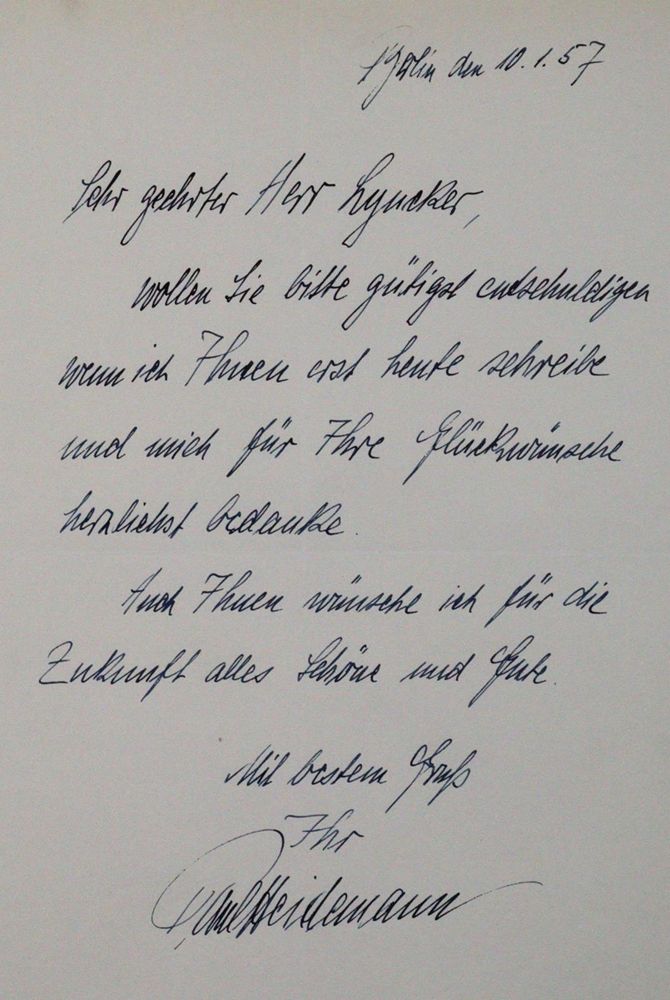 Berlin den 10.1.57
Sehr geehrter Herr Lyncker,
wollen Sie bitte gütigst entschuldigen
wenn ich Ihnen erst heute schreibe
und mich für Ihre Glückwünsche
herzlichst bedanke.
Auch Ihnen wünsche ich für die
Zukunft alles Schöne und Gute.
Mit bestem Gruß
Ihr
Paul Heidemann